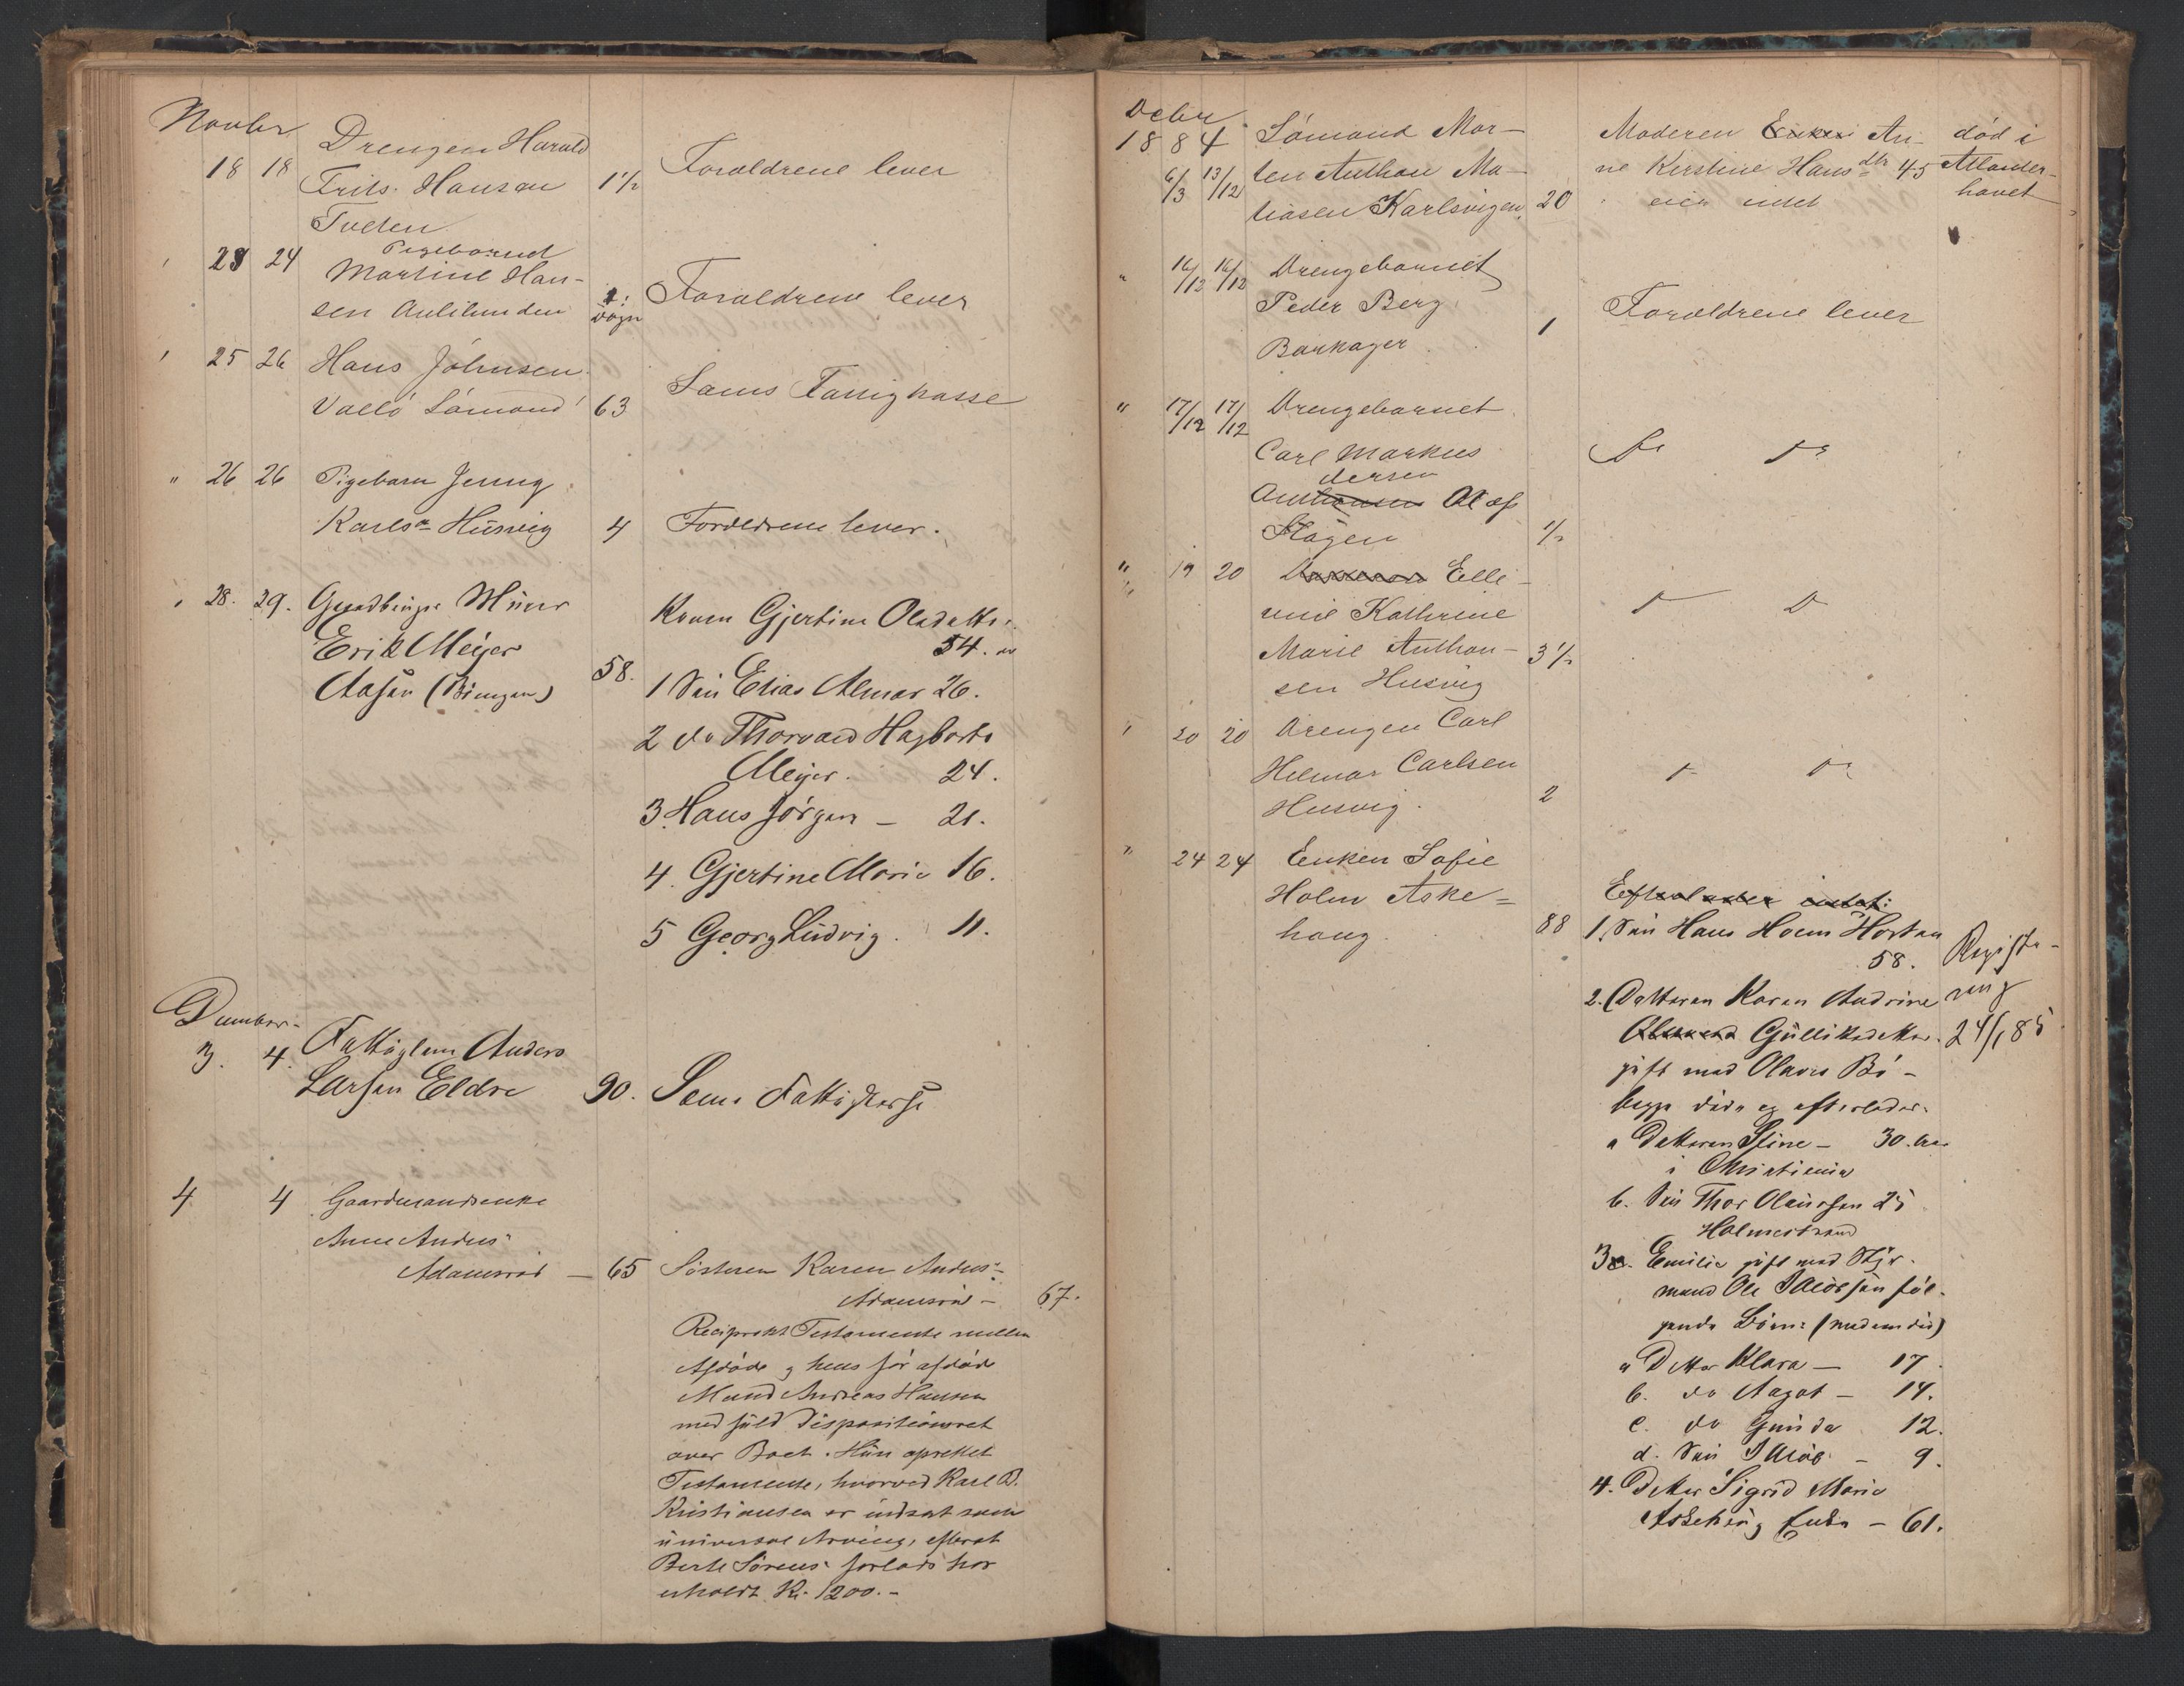 Novbr
18 18 Drengen Harald
Frits. Hansen 1 1/2 Forældrene lever
Tveten
23 24 Pigebarnet
Martine Han-
sen Aulilunden 1: Døgn Forældrene lever
25 26 Hans Johnsen
Vallö Sömand 63 Sems Fattigkasse
" 26 26 Pigebarn Jenny
Karlsn Husvig 4 Forældrene lever.
28. 29.
Erik Meyer
Aasen 58.
Konen Gjertine Olsdatter
54. aar
1 Søn Elias Almar 26.
2 do Thorvald Hagbarth
Meyer. 24.
3 Hans Jörgen - 21.
4. Gjertine Marie 16.
5 Georg Ludvig. 11.
December
3. 4. Fattiglem Anders
Larsen Eldre 90. Sems Fattigkasse
4 4 Gaardmandsenke
Anne Anders-
Adamsröd - 65 Søsteren Karen Anders-
Adamsröd - 67.
Reciprokt Testamente mellem
Afdöde og hens før afdöde
Mand Andreas Hansen
med fuld Dispositionsret
over Boet. Hun oprettet
Testamente, hvorved Karl B.
Kristiansen er indsat som
universal Arving, efterat
Berte Sörens- forlods har
erholdt Kr. 1200.-
Debr
1884 Sömand Mor-
6/3 13/12 ten Anthon Ma-
tiasen Karlsvigen 20
Moderen Enken An-
ne Kirstine Hansdtr 45
eier intet
död i
Atlander-
havet
" 16/12 16/12 Drengebarnet
Peder Berg
Barkager 1 Forældrene lever
" 17/12 17/12 Drengebarnet
Carl Markus
dersen
Anthonsen Olaf
Skögen 1/2
Do Do
" 19 20 Elli-
Kathrine
Marie Anthon- 3 1/2
sen Husvig
D D
20 20 Drengen Carl
Helmar Carlsen
Husvig. 2
D Do
" 24 24 Enken Sofie
Holm Aske=
haug. 88
Efterlader intet:
1. Søn Hans Holm Horten
58.
Registre-
ring
24/1 85
2. Datteren Karen Andrine
Gulliksdatter.
gift med Olaves Bö-
begge döde og efterlader
a Datteren Stine - 30. aar
i Christiania
b. Søn Thor Olaussen 25
Holmestrand
3. Emilie gift med Styr-
mand Ole Jacobsen föl-
gende Börn: (moderen död)
a Datter Klara - 17
b. do Aagot - 14.
c. do Gunda 12.
d. Søn Jacob - 9.
4. Datter Sigrid Marie
Askehoug Enke - 61.